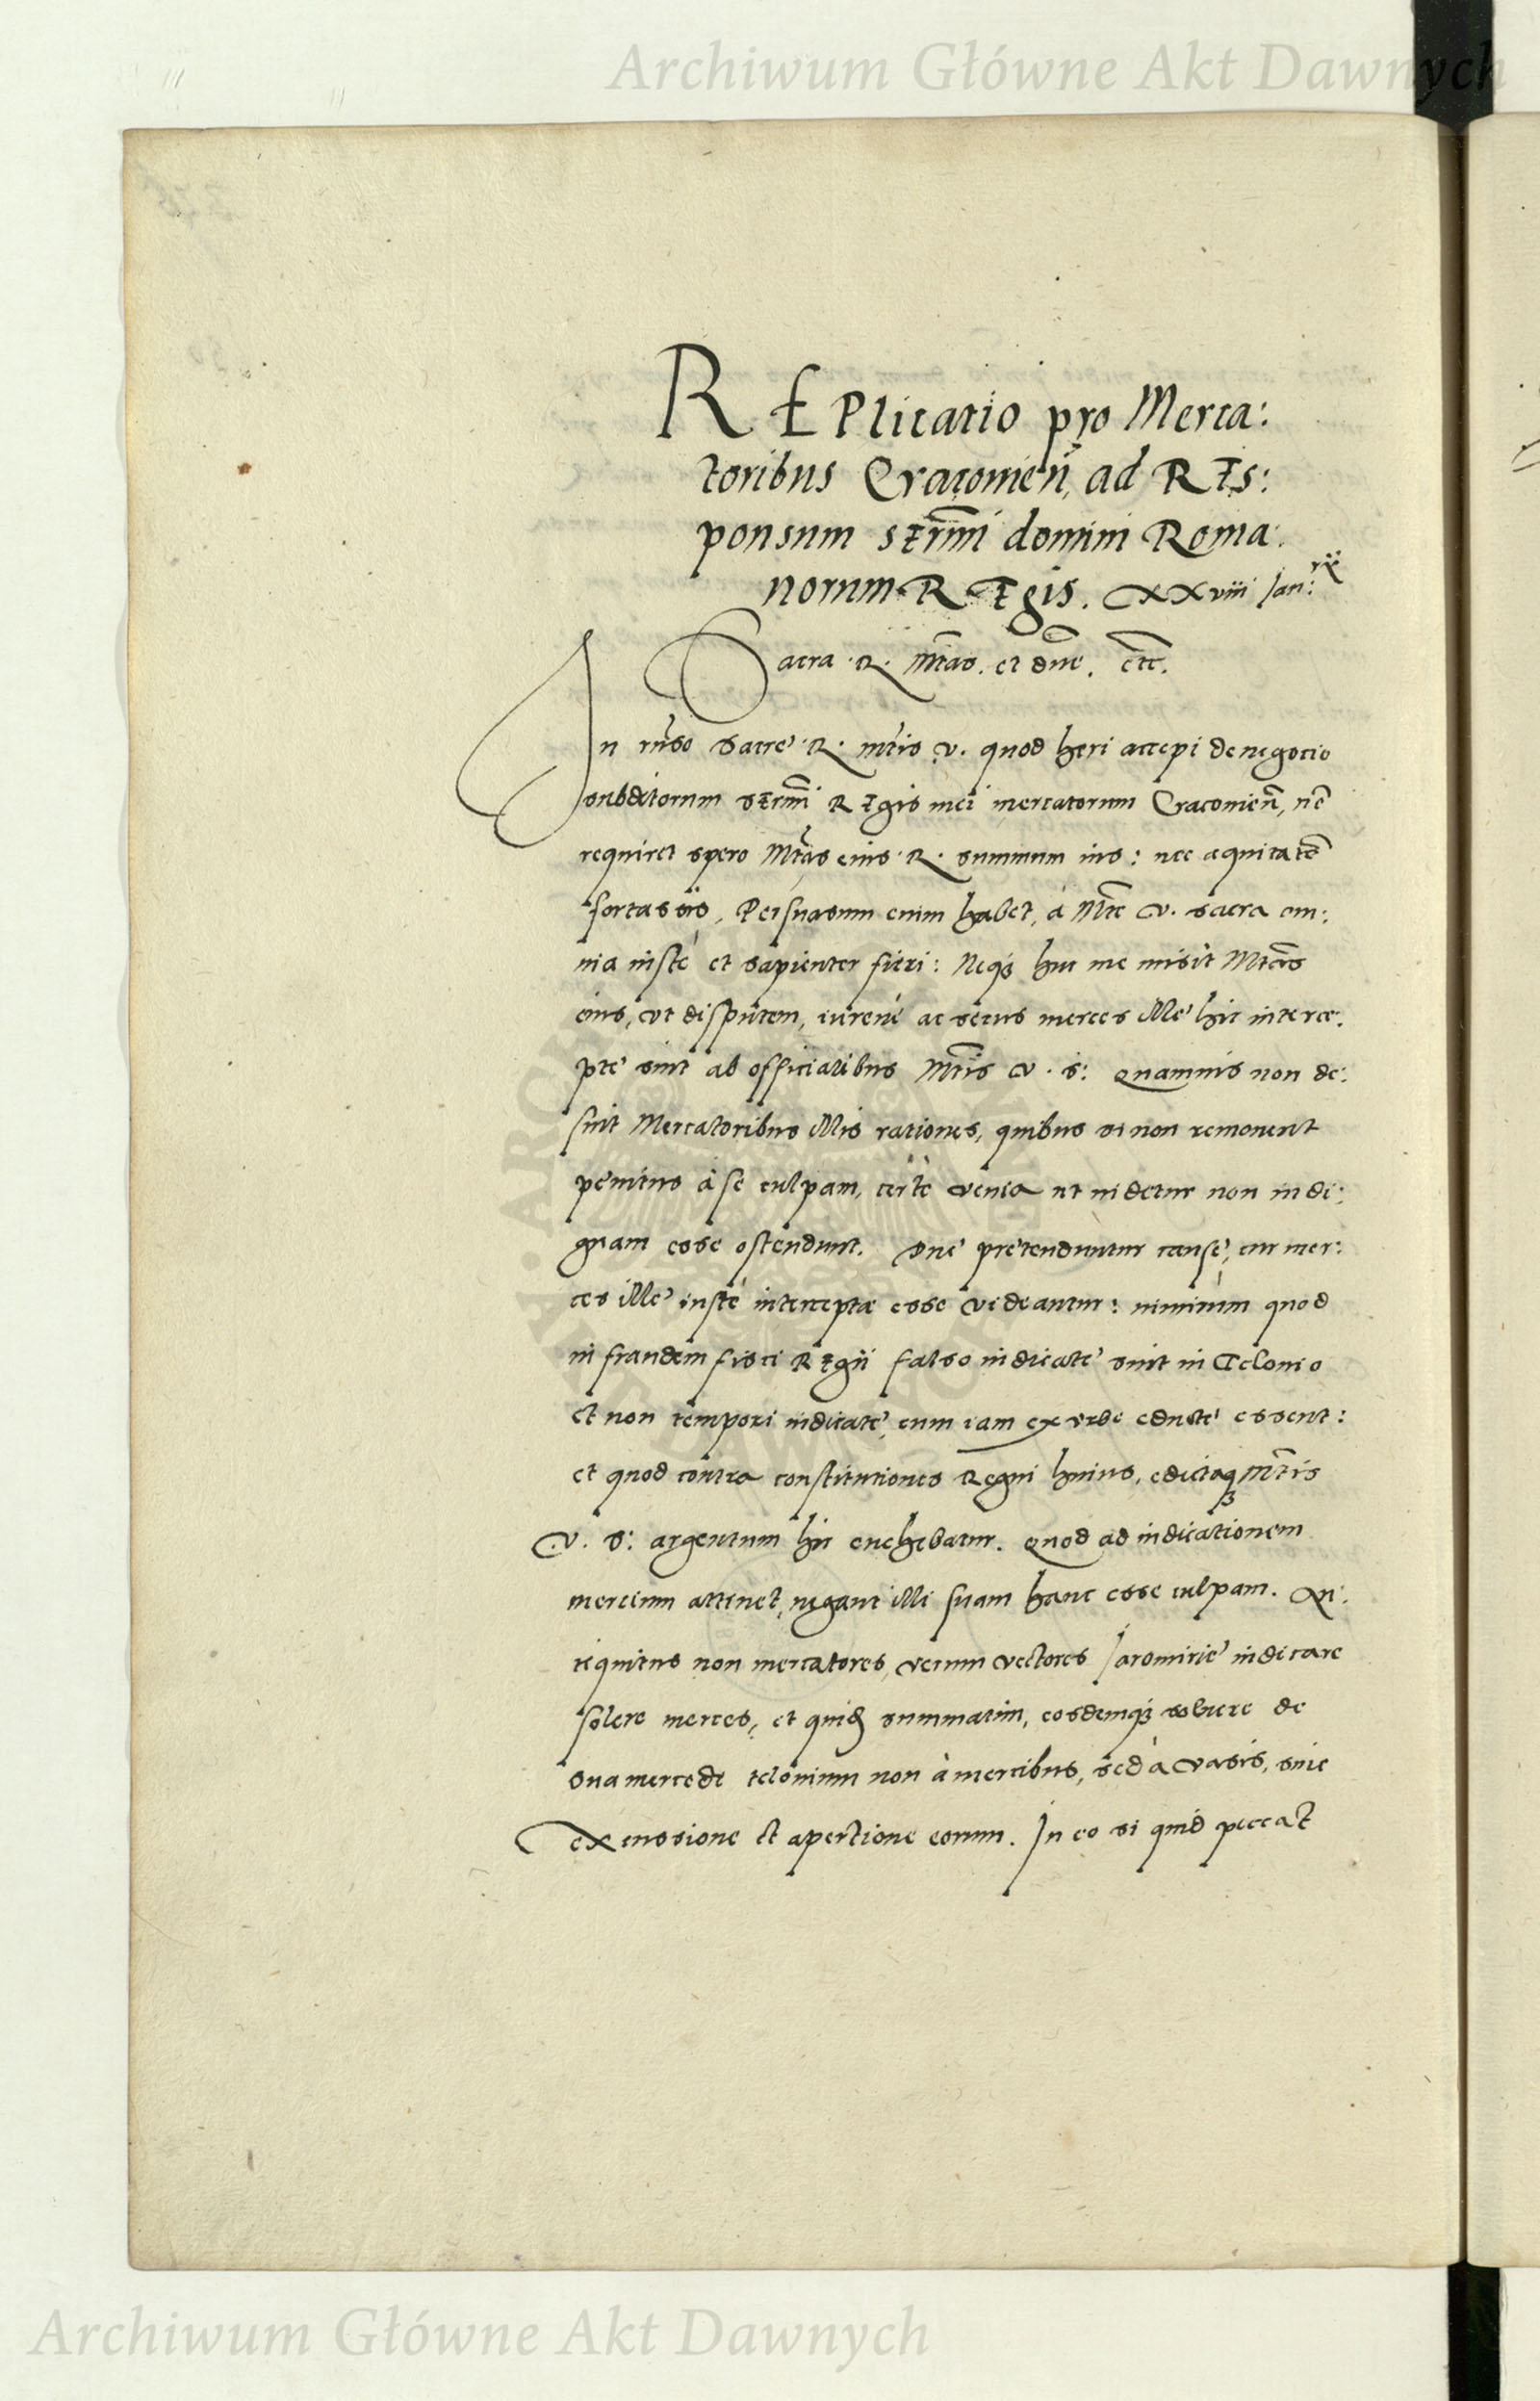 Archiwum Główne Akt Dawnych
REPlicatio pro Merca:
toribus Cracomień, ad REs:
ponsum sermi domini Roma:
norum REgis. XXviii Jan: rij
Sacra R. Mtas. et dne. etc.
In rñso Sacrę R. mtis v. quod heri accepi de negocio
subditorum sermi REgis mei mercatorum Cracomień, nō
requiret spero Mtas eius R. summum ius: nec aequitatē
fortassis, Persuasum enim habet, à Mte v. sacra om:
nia iustè et sapienter fieri: Neqꝫ huc me misit Mtas
eius, vt disputem, iurenè ac secus merces illę hic interce:
ptę sint ab officialibus Mtis v. s: Quamuis non de:
sint Mercatoribus illis rationes, quibus si non remouent
penitus à se culpam, certè venia ut uidetur non indi:
gnam esse ostendunt. Duę prętenduntur causę, cur mer:
ces illę iustè interceptae esse videantur: nimirùm quod
in fraudem fisci REgii falso indicatę sint in Telonio
et non tempori indicatę, cum iam ex vrbe eductę essent:
et quod contra constitutiones Regni huius, edictaqꝫ Mtis
v. s: argentum hic euehebatur. Quod ad indicationem
mercium attinet, negant illi suam hanc esse culpam. An:
tiquitus non mercatores, verum vectores Jaromirię indicare
solere merces, et quidē summatim, eosdemqꝫ soluere de
sua mercede telonium non à mercibus, sed à vasis, siue
excussione et apertione eorum. In eo si quid peccat
Archiwum Główne Akt Dawnych